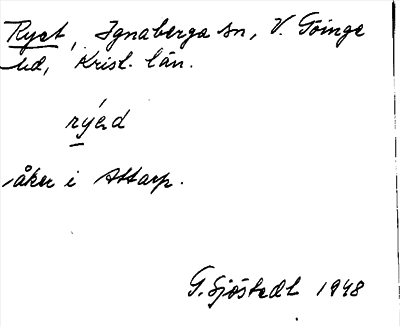 Ryet, Ignaberga sn, V. Göinge
hd, Krist. län.
rýed
åker i Attarp.
G. Sjöstedt 1948